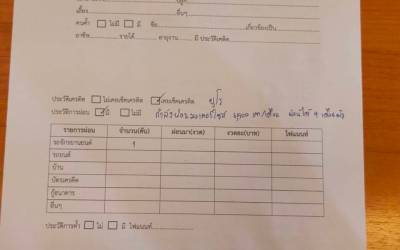 เลี้ยง อื่นๆ
คนค้ำ ☐ ไม่มี ☐ มี ชื่อ เกี่ยวข้องเป็น
อาชีพ รายได้ อายุงาน มี ประวัติเครดิต
ประวัติเครดิต ☐ ไม่เคยเช็คเครดิต ☑ เคยเช็คเครดิต
ประวัติการผ่อน ☑ มี ☐ ไม่มี กำลังผ่อนมอเตอร์ไซค์
รายการผ่อน จำนวน(คัน) ผ่อนมา(งวด) งวดละ(บาท) ไฟแนนท์
รถจักรยานยนต์ 1
รถยนต์
บ้าน
บัตรเครดิต
กู้ธนาคาร
อื่นๆ
ประวัติการค้ำ ☐ ไม่ ☐ มี ไฟแนนท์